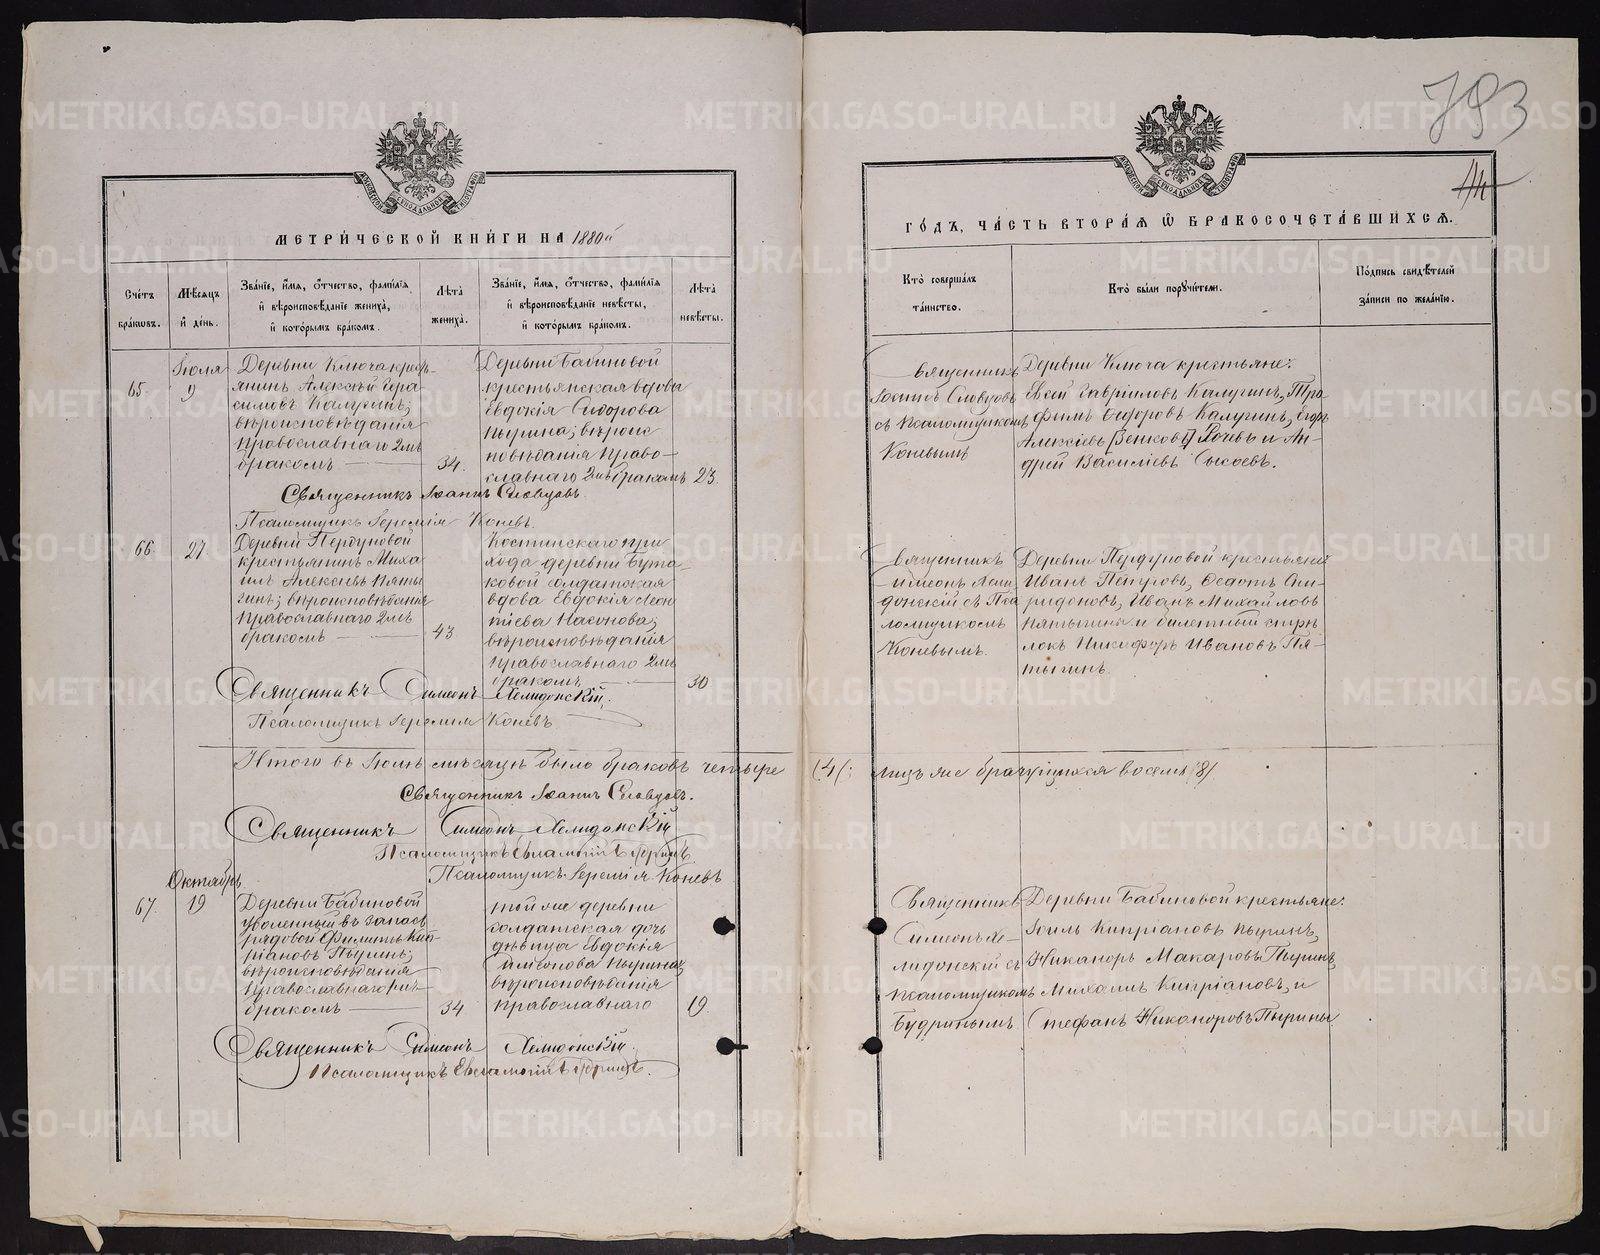 793
44
МЕТРИЧЕСКОЙ КНИГИ НА 1880й
ГОДЪ, ЧАСТЬ ВТОРАЯ Ѡ БРАКОСОЧЕТАВШИХСЯ.
Счетъ браковъ.
Мѣсяцъ и день.
Званіе, имя, отчество, фамилія
и вѣроисповѣданіе жениха,
и которымъ бракомъ.
Лѣта жениха.
Званіе, имя, отчество, фамилія
и вѣроисповѣданіе невѣсты,
и которымъ бракомъ.
Лѣта невѣсты.
Кто совершалъ
таинство.
Кто были поручители.
Подпись свидѣтелей
записи по желанію.
65.
Іюля
9
Деревни Ключа кресть-
янинъ Алексѣй Гера-
симовъ Калугинъ;
вѣроисповѣданія
православнаго 2мъ
бракомъ
34.
Деревни Бабиновой
крестьянская вдова
Евдокія Сидорова
Пырина; вѣроис
повѣданія право-
славнаго 2мъ бракомъ
23.
Священникъ
Іоаннъ Словцовъ
съ псаломщикомъ
Коневымъ
Деревни Ключа крестьяне:
Евсей Гавриловъ Калугинъ, Тро
фимъ Ѳедоровъ Калугинъ, Егоръ
Алексѣевъ и Ан-
дрей Василіевъ Сысоевъ.
Священникъ Іоаннъ Словцовъ.
Псаломщикъ Іеремія Коневъ.
66.
27.
Деревни Пердуновой
крестьянинъ Миха
илъ Алексѣевъ Пяты
гинъ; вѣроисповѣданія
православнаго 2мъ
бракомъ
43
Костинскаго при
хода деревни Бута-
ковой солдатская
вдова Евдокія Леон
тіева Насонова;
вѣроисповѣданія
православнаго 2мъ
бракомъ
30
Священникъ
Симеонъ Хели
донскій съ Пса
ломщикомъ
Коневымъ.
Деревни Пердуновой крестьяне
Иванъ Петровъ, Ѳедотъ Спи-
ридоновъ, Иванъ Михайловъ
Пятыгины и билетный стрѣ
локъ Никифоръ Ивановъ Пя-
тыгинъ.
Священникъ Симеонъ Хелидонскій.
Псаломщикъ Іеремія Коневъ
Итого въ Іюлѣ мѣсяцѣ было браковъ четыре (4): лицъ же брачущихся восемь (8)
Священникъ Іоаннъ Словцовъ.
Священникъ Симеонъ Хелидонскій
Псаломщикъ Евлампій Будринъ
Псаломщикъ Іеремія Коневъ
Октябрь
67.
19
Деревни Бабиновой
уволенный въ запасъ
рядовой Филиппъ Кип-
ріановъ Пыринъ;
вѣроисповѣданія
православнаго
бракомъ
34
той же деревни
солдатская дочь
дѣвица Евдокія
Симеонова Пырина;
вѣроисповѣданія
православнаго
19.
Священникъ
Симеонъ Хе-
лидонскій съ
псаломщикомъ
Будринымъ.
Деревни Бабиновой крестьяне:
Іоиль Кипріановъ Пыринъ,
Никаноръ Макаровъ Пыринъ,
Михаилъ Кипріановъ, и
Стефанъ Никаноровъ Пырины
Священникъ Симеонъ Хелидонскій.
Псаломщикъ Евлампій Будринъ.
METRIKI.GASO-URAL.RU